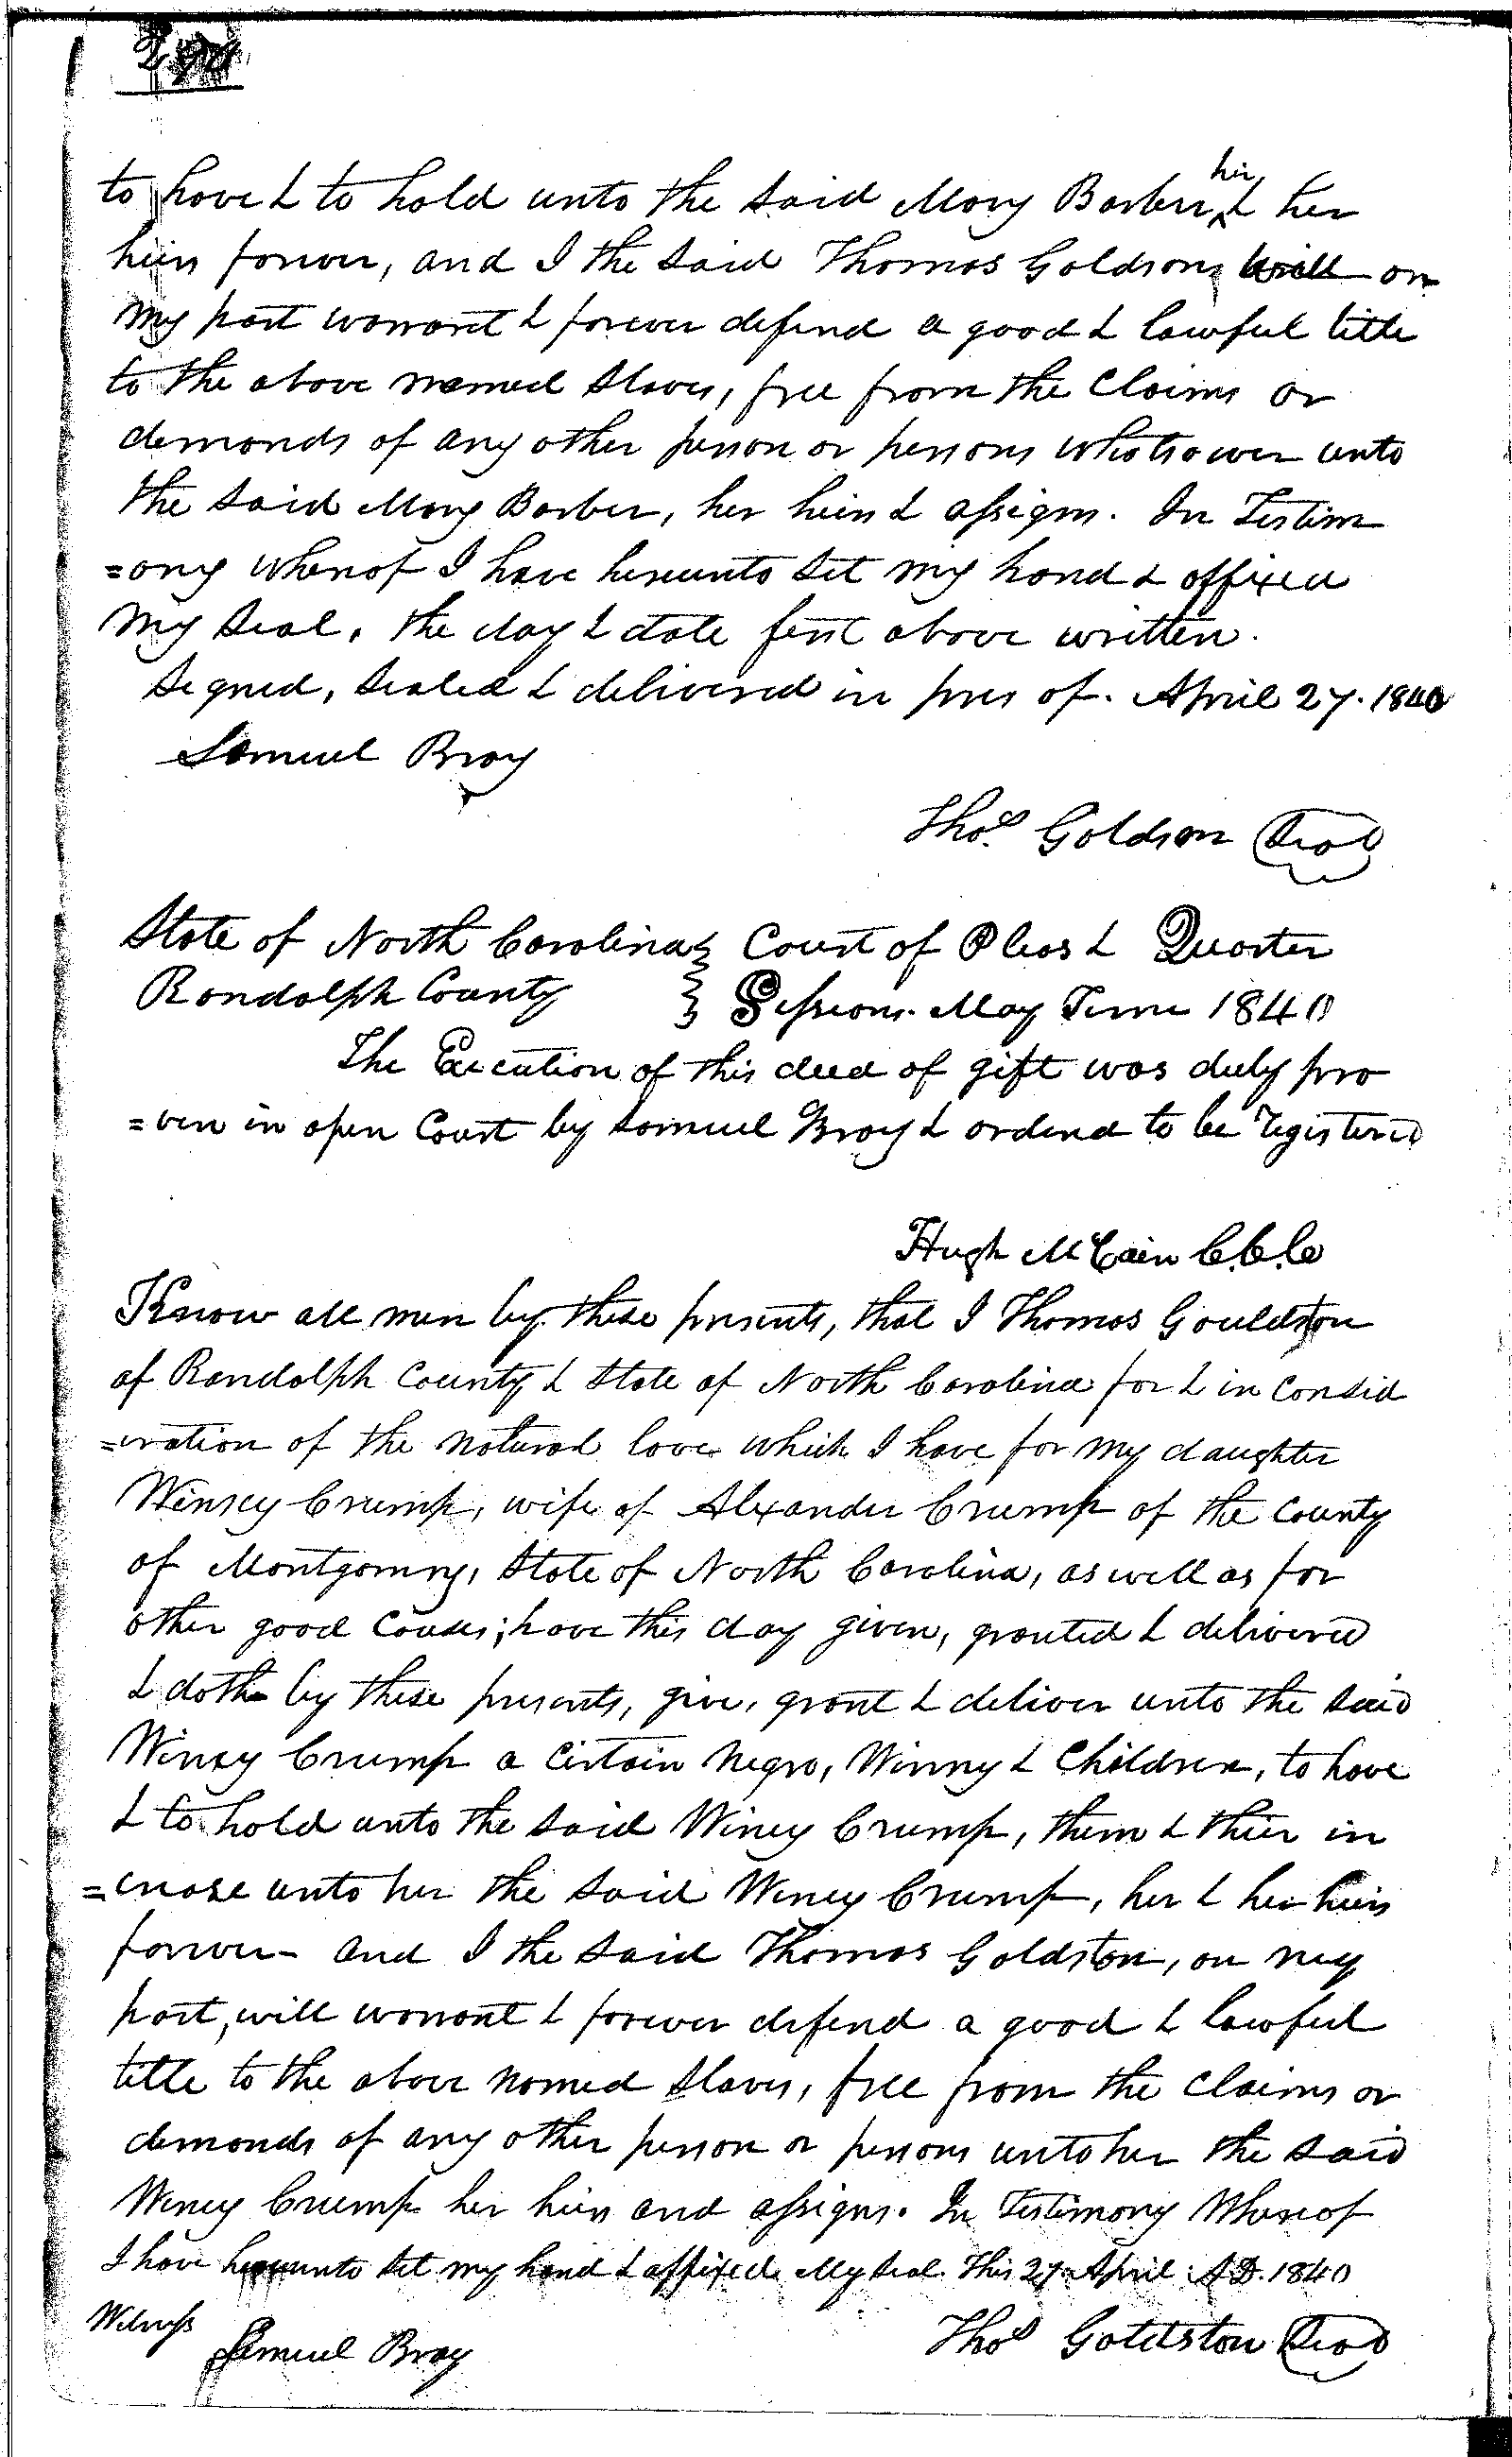 to have & to hold unto the said Mary Barber, her & her
heirs forever, and I the said Thomas Goldson, will on
my part warrant & forever defend a good & lawful title
to the above named slaves, free from the claims or
demands of any other person or persons whatsoever unto
the said Mary Barber, her heirs & assigns. In Testim
=ony whereof I have hereunto set my hand & affixed
my seal, the day & date first above written.
Signed, sealed & delivered in pres of. April 27. 1840
Samuel Bray
Thos. Goldson Seal
State of North Carolina } Court of Pleas & Quarter
Randolph County } Sessions. May Term 1840
The Execution of this deed of gift was duly pro
=ven in open Court by Samuel Bray & ordered to be registered
Hugh McCain C.C.C.
Know all men by these presents, that I Thomas Gouldston
of Randolph County & State of North Carolina for & in consid
=eration of the natural love which I have for my daughter
Winsey Crump, wife of Alexander Crump of the County
of Montgomry, State of North Carolina, as well as for
other good causes; have this day given, granted & delivered
& doth by these presents, give, grant & deliver unto the said
Winsy Crump a certain Negro, Winny & Children, to have
& to hold unto the said Winey Crump, them & their in
=crease unto her the said Winey Crump, her & her heirs
forever - and I the said Thomas Goldston, on my
part, will warrant & forever defend a good & lawful
title to the above named slaves, free from the claims or
demands of any other person or persons unto her the said
Winey Crump her heirs and assigns. In Testimony Whereof
I have hereunto set my hand & affixed My seal. This 27 April A.D. 1840
Witness
Samuel Bray
Thos Goldston Seal